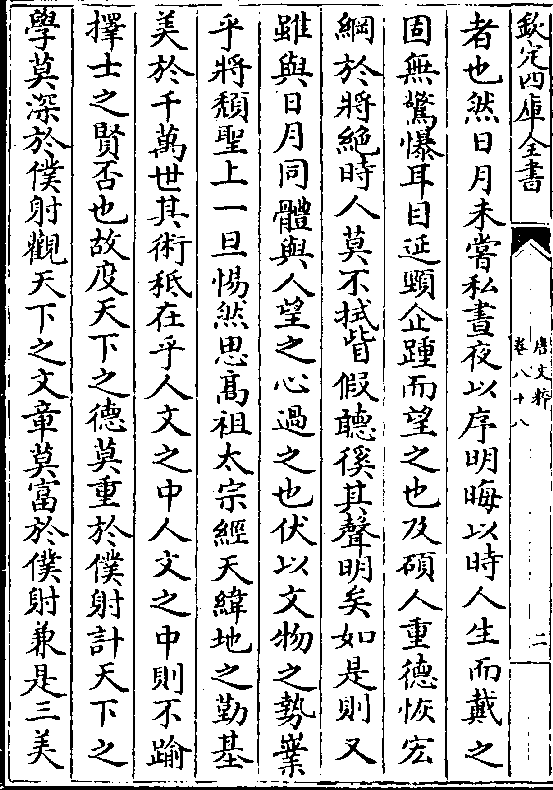 欽定四庫全書
唐文粹
卷八十八
二
者也然日月未嘗私晝夜以序明晦以時人生而戴之
固無驚爆耳目延頸企踵而望之也及碩人重德恢宏
綱於將絶時人莫不拭眥假聽徯其聲明矣如是則又
雖與日月同體與人望之心過之也伏以文物之勢業
乎將頽聖上一旦惕然思髙祖太宗經天緯地之勤基
美於千萬世其術秪在乎人文之中人文之中則不踰
擇士之賢否也故度天下之德莫重於僕射計天下之
學莫深於僕射觀天下之文章莫富於僕射兼是三美